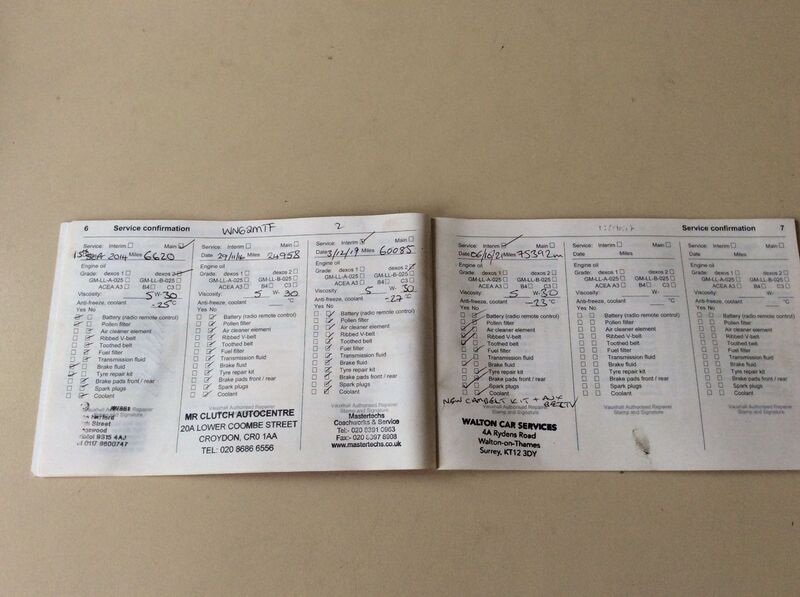 6 Service confirmation WN62MTF 2
Service: Interim Main
Date 15th 2014 Miles 6620
Engine oil
Grade: dexos 1 dexos 2
GM-LL-A-025 GM-LL-B-025
ACEA A3 B4 C3
Viscosity: 5 W- 30
Anti-freeze, coolant -25°C
Yes No
Battery (radio remote control)
Pollen filter
Air cleaner element
Ribbed V-belt
Toothed belt
Fuel filter
Transmission fluid
Brake fluid
Tyre repair kit
Brake pads front / rear
Spark plugs
Coolant
Vauxhall Authorised Repairer
Stamp and Signature
Street
9315 4AJ
0117 9600747
Service: Interim Main
Date 29/11/16 Miles 24958
Engine oil
Grade: dexos 1 dexos 2
GM-LL-A-025 GM-LL-B-025
ACEA A3 B4 C3
Viscosity: 5 W- 30
Anti-freeze, coolant °C
Yes No
Battery (radio remote control)
Pollen filter
Air cleaner element
Ribbed V-belt
Toothed belt
Fuel filter
Transmission fluid
Brake fluid
Tyre repair kit
Brake pads front / rear
Spark plugs
Coolant
Vauxhall Authorised Repairer
MR CLUTCH AUTOCENTRE
20A LOWER COOMBE STREET
CROYDON, CR0 1AA
TEL: 020 8686 6556
Service: Interim Main
Date 3/12/19 Miles 60085
Engine oil
Grade: dexos 1 dexos 2
GM-LL-A-025 GM-LL-B-025
ACEA A3 B4 C3
Viscosity: 5 W- 30
Anti-freeze, coolant -27°C
Yes No
Battery (radio remote control)
Pollen filter
Air cleaner element
Ribbed V-belt
Toothed belt
Fuel filter
Transmission fluid
Brake fluid
Tyre repair kit
Brake pads front / rear
Spark plugs
Coolant
Vauxhall Authorised Repairer
Mastertechs
Coachworks & Service
Tel:- 020 8391 0963
Fax:- 020 8397 8908
www.mastertechs.co.uk
Service confirmation 7
Service: Interim Main
Date 06/10/21 Miles 75392m
Engine oil
Grade: dexos 1 dexos 2
GM-LL-A-025 GM-LL-B-025
ACEA A3 B4 C3
Viscosity: 5 W- 30
Anti-freeze, coolant -23°C
Yes No
Battery (radio remote control)
Pollen filter
Air cleaner element
Ribbed V-belt
Toothed belt
Fuel filter
Transmission fluid
Brake fluid
Tyre repair kit
Brake pads front / rear
Spark plugs
Coolant
NEW CAMBELT KIT + AUX
Vauxhall Authorised Repairer
Stamp and Signature
WALTON CAR SERVICES
4A Rydens Road
Walton-on-Thames
Surrey, KT12 3DY
Service: Interim Main
Date Miles
Engine oil
Grade: dexos 1 dexos 2
GM-LL-A-025 GM-LL-B-025
ACEA A3 B4 C3
Viscosity: W-
Anti-freeze, coolant °C
Yes No
Battery (radio remote control)
Pollen filter
Air cleaner element
Ribbed V-belt
Toothed belt
Fuel filter
Transmission fluid
Brake fluid
Tyre repair kit
Brake pads front / rear
Spark plugs
Coolant
Vauxhall Authorised Repairer
Stamp and Signature
Service: Interim Main
Date Miles
Engine oil
Grade: dexos 1 dexos 2
GM-LL-A-025 GM-LL-B-025
ACEA A3 B4 C3
Viscosity: W-
Anti-freeze, coolant °C
Yes No
Battery (radio remote control)
Pollen filter
Air cleaner element
Ribbed V-belt
Toothed belt
Fuel filter
Transmission fluid
Brake fluid
Tyre repair kit
Brake pads front / rear
Spark plugs
Coolant
Vauxhall Authorised Repairer
Stamp and Signature